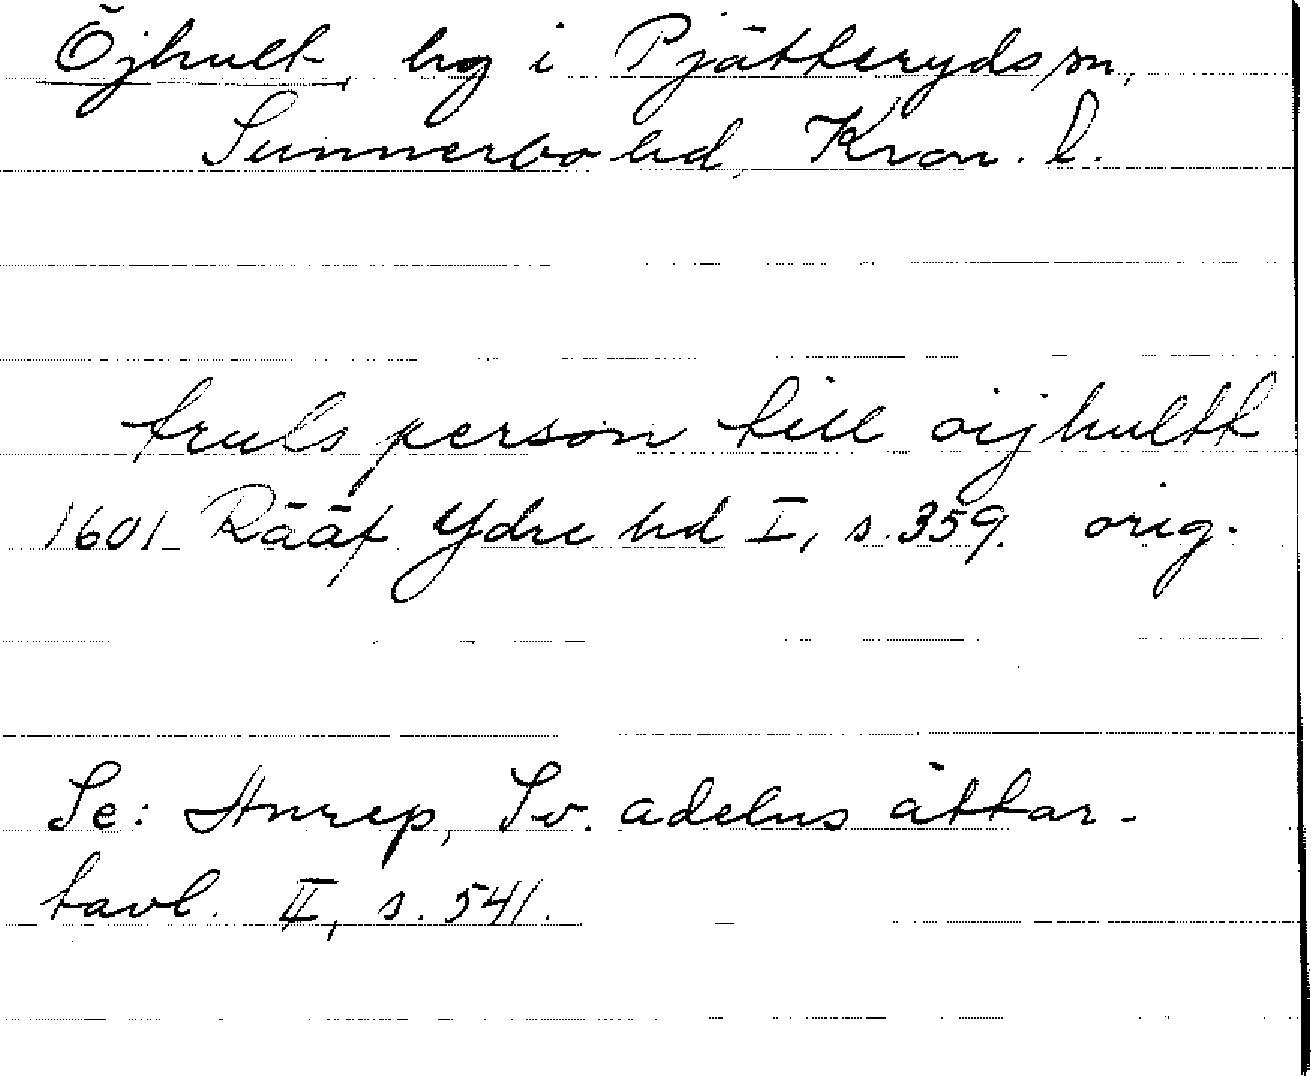 Öjhult, hg i Pjätteryds sn,
Sunnerbo hd, Kron. l.
truls person till öijhultt
1601 Rääf Ydre hd I, s. 359. orig.
Se: Anrep, Sv. adelns ättar-
tavl. II, s. 541.